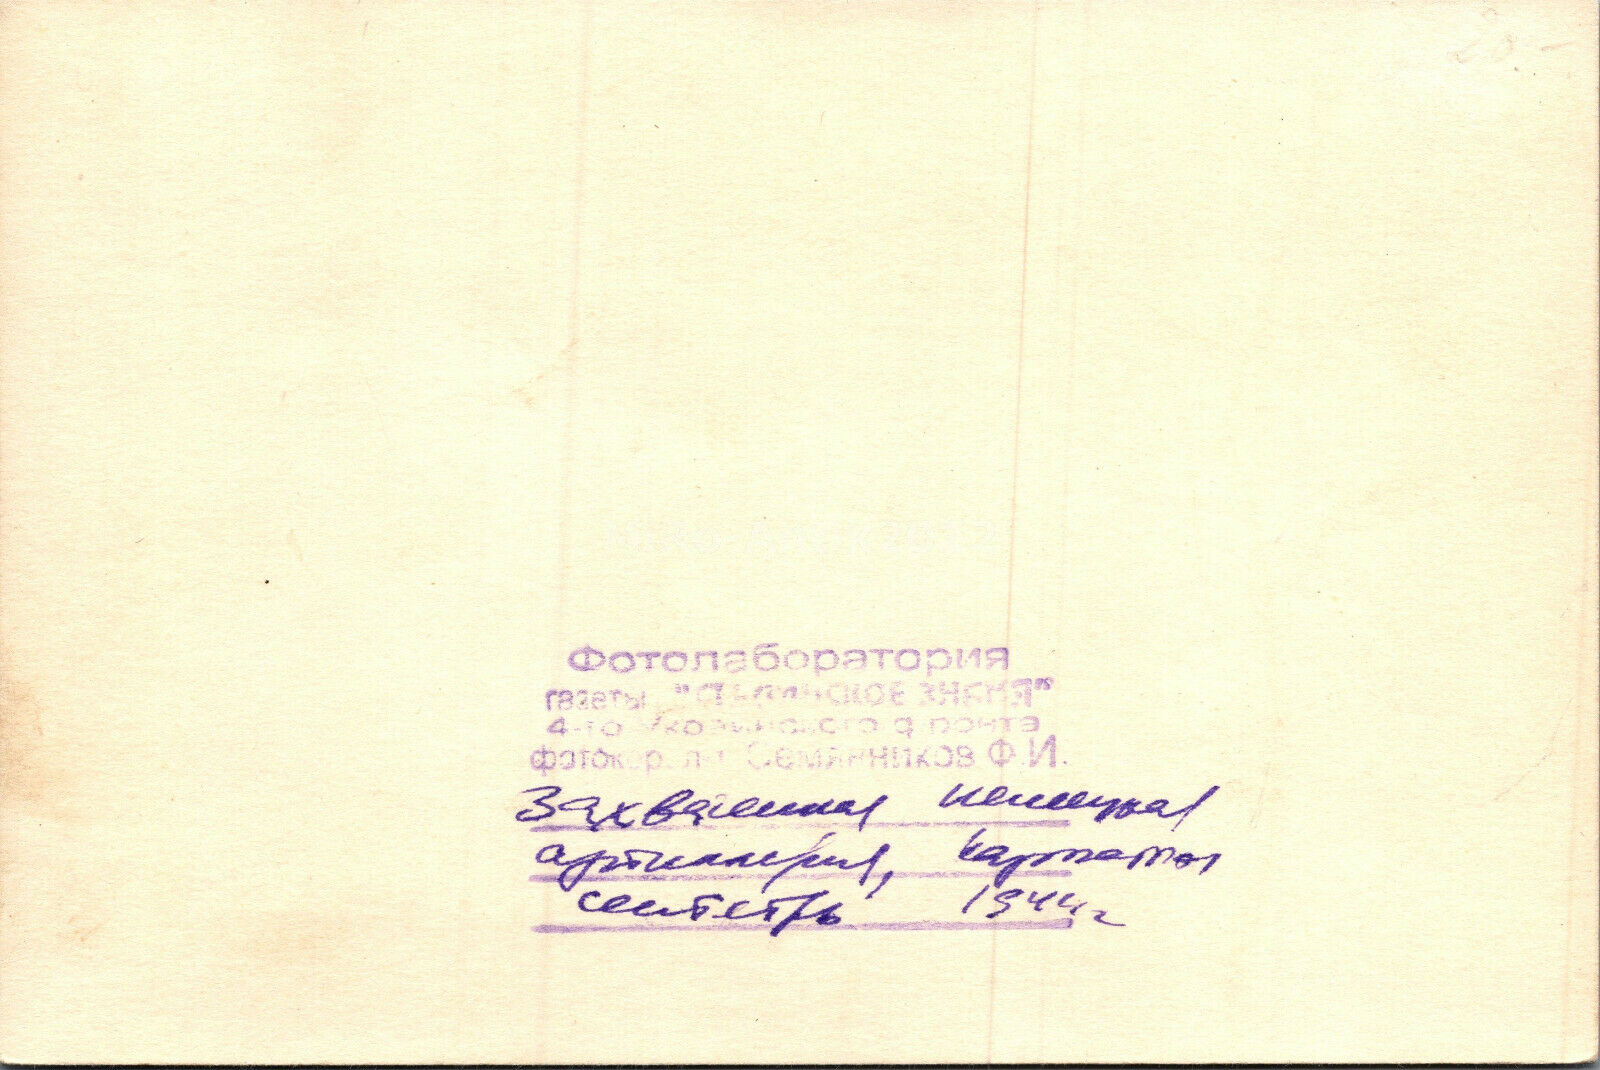 20.-
Фотолаборатория
газеты "СТАЛИНСКОЕ ЗНАМЯ"
4-го Украинского фронта
фотокор. Семянников Ф.И.
Захваченная немецкая
артиллерия, Карпаты
сентябрь 1944 г